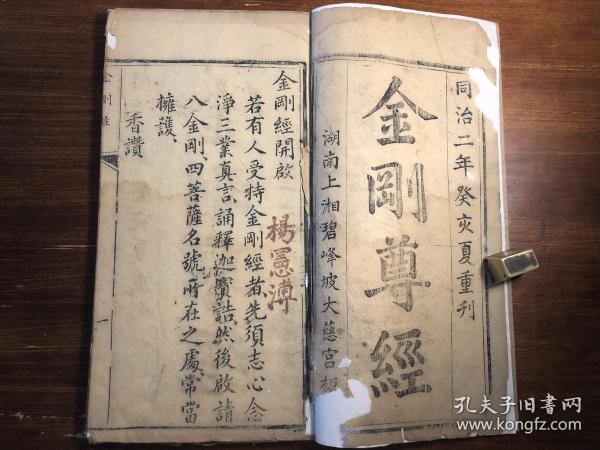 同治二年癸亥夏重刊
金剛尊經
湖南上湘碧峰坡大慈宮板
金剛經開啟
若有人受持金剛經者先須志心念
淨三業真言誦釋迦寶誥然後啟請
八金剛四菩薩名號所在之處常當
擁護
香讚
楊憲溥
金剛經
一
孔夫子旧书网
www.kongfz.com